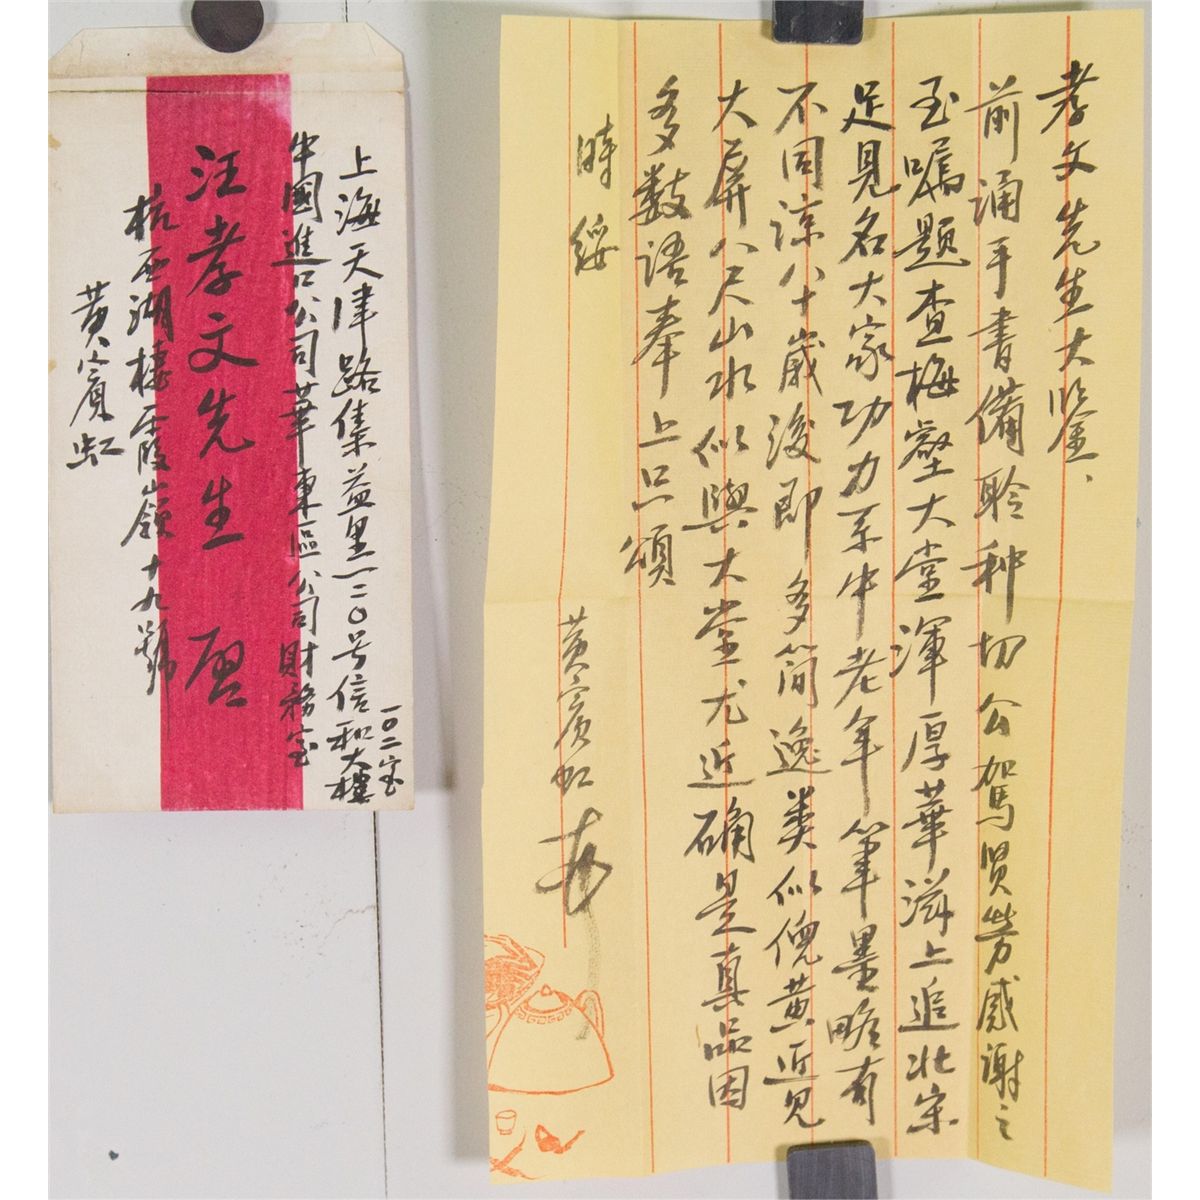 孝文先生大鑒、
前涌手書備聆种切公駕賢勞感謝之
玉嘱題查梅壑大堂渾厚華滋上追北宋
足見名大家功力系中老年筆墨略有
不同諒八十歲後即多簡逸类似倪黄近見
大屏八尺山水似與大堂尤近确是真品因
多数语奉上只頌
時綏
黄賓虹
上海天津路集益里一二〇号信和大樓
一〇二室
中國進口公司華東區公司財務室
汪孝文先生 啟
杭西湖棲霞嶺十九號
黄賓虹